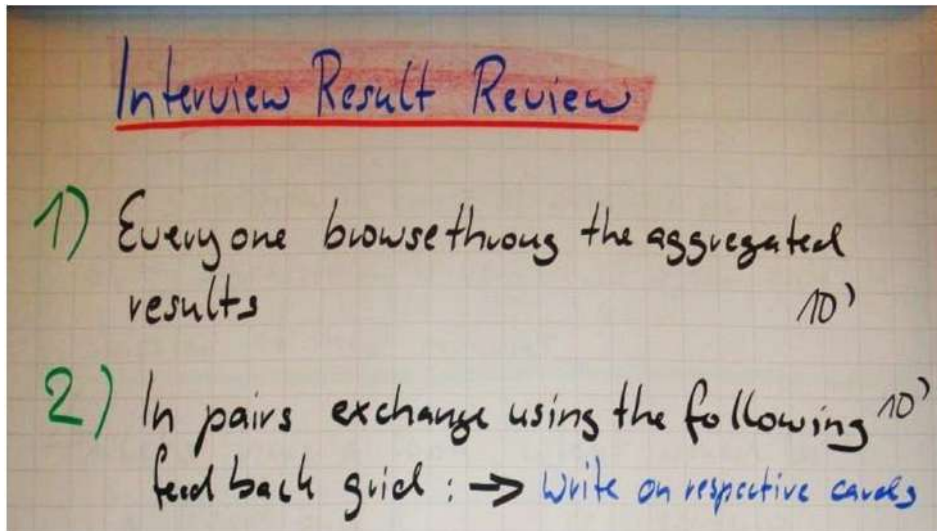 Interview Result Review
1) Everyone browse throug the aggregated
results 10'
2) In pairs exchange using the following 10'
feed back grid : → Write on respective cards